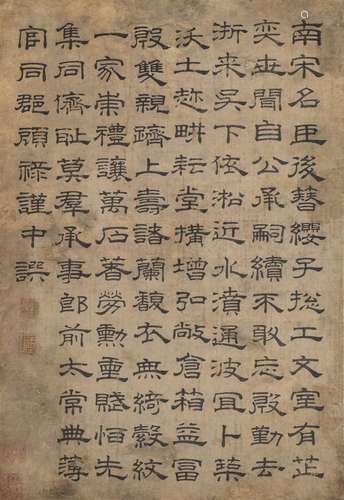 南宋名臣後簪纓子捴工文室有芷
奕世聞自公承嗣續不敢忘殷勤去
浙来吳下依淞近水濆通波宜卜築
沃土趂畊耘堂搆增弘敞倉箱益富
殷雙親躋上壽諸蘭馥衣無綺縠紋
一家崇禮讓萬石著勞勳重賦恒先
集同儕耻莫羣承事郎前太常典簿
官同郡顧祿謹中譔